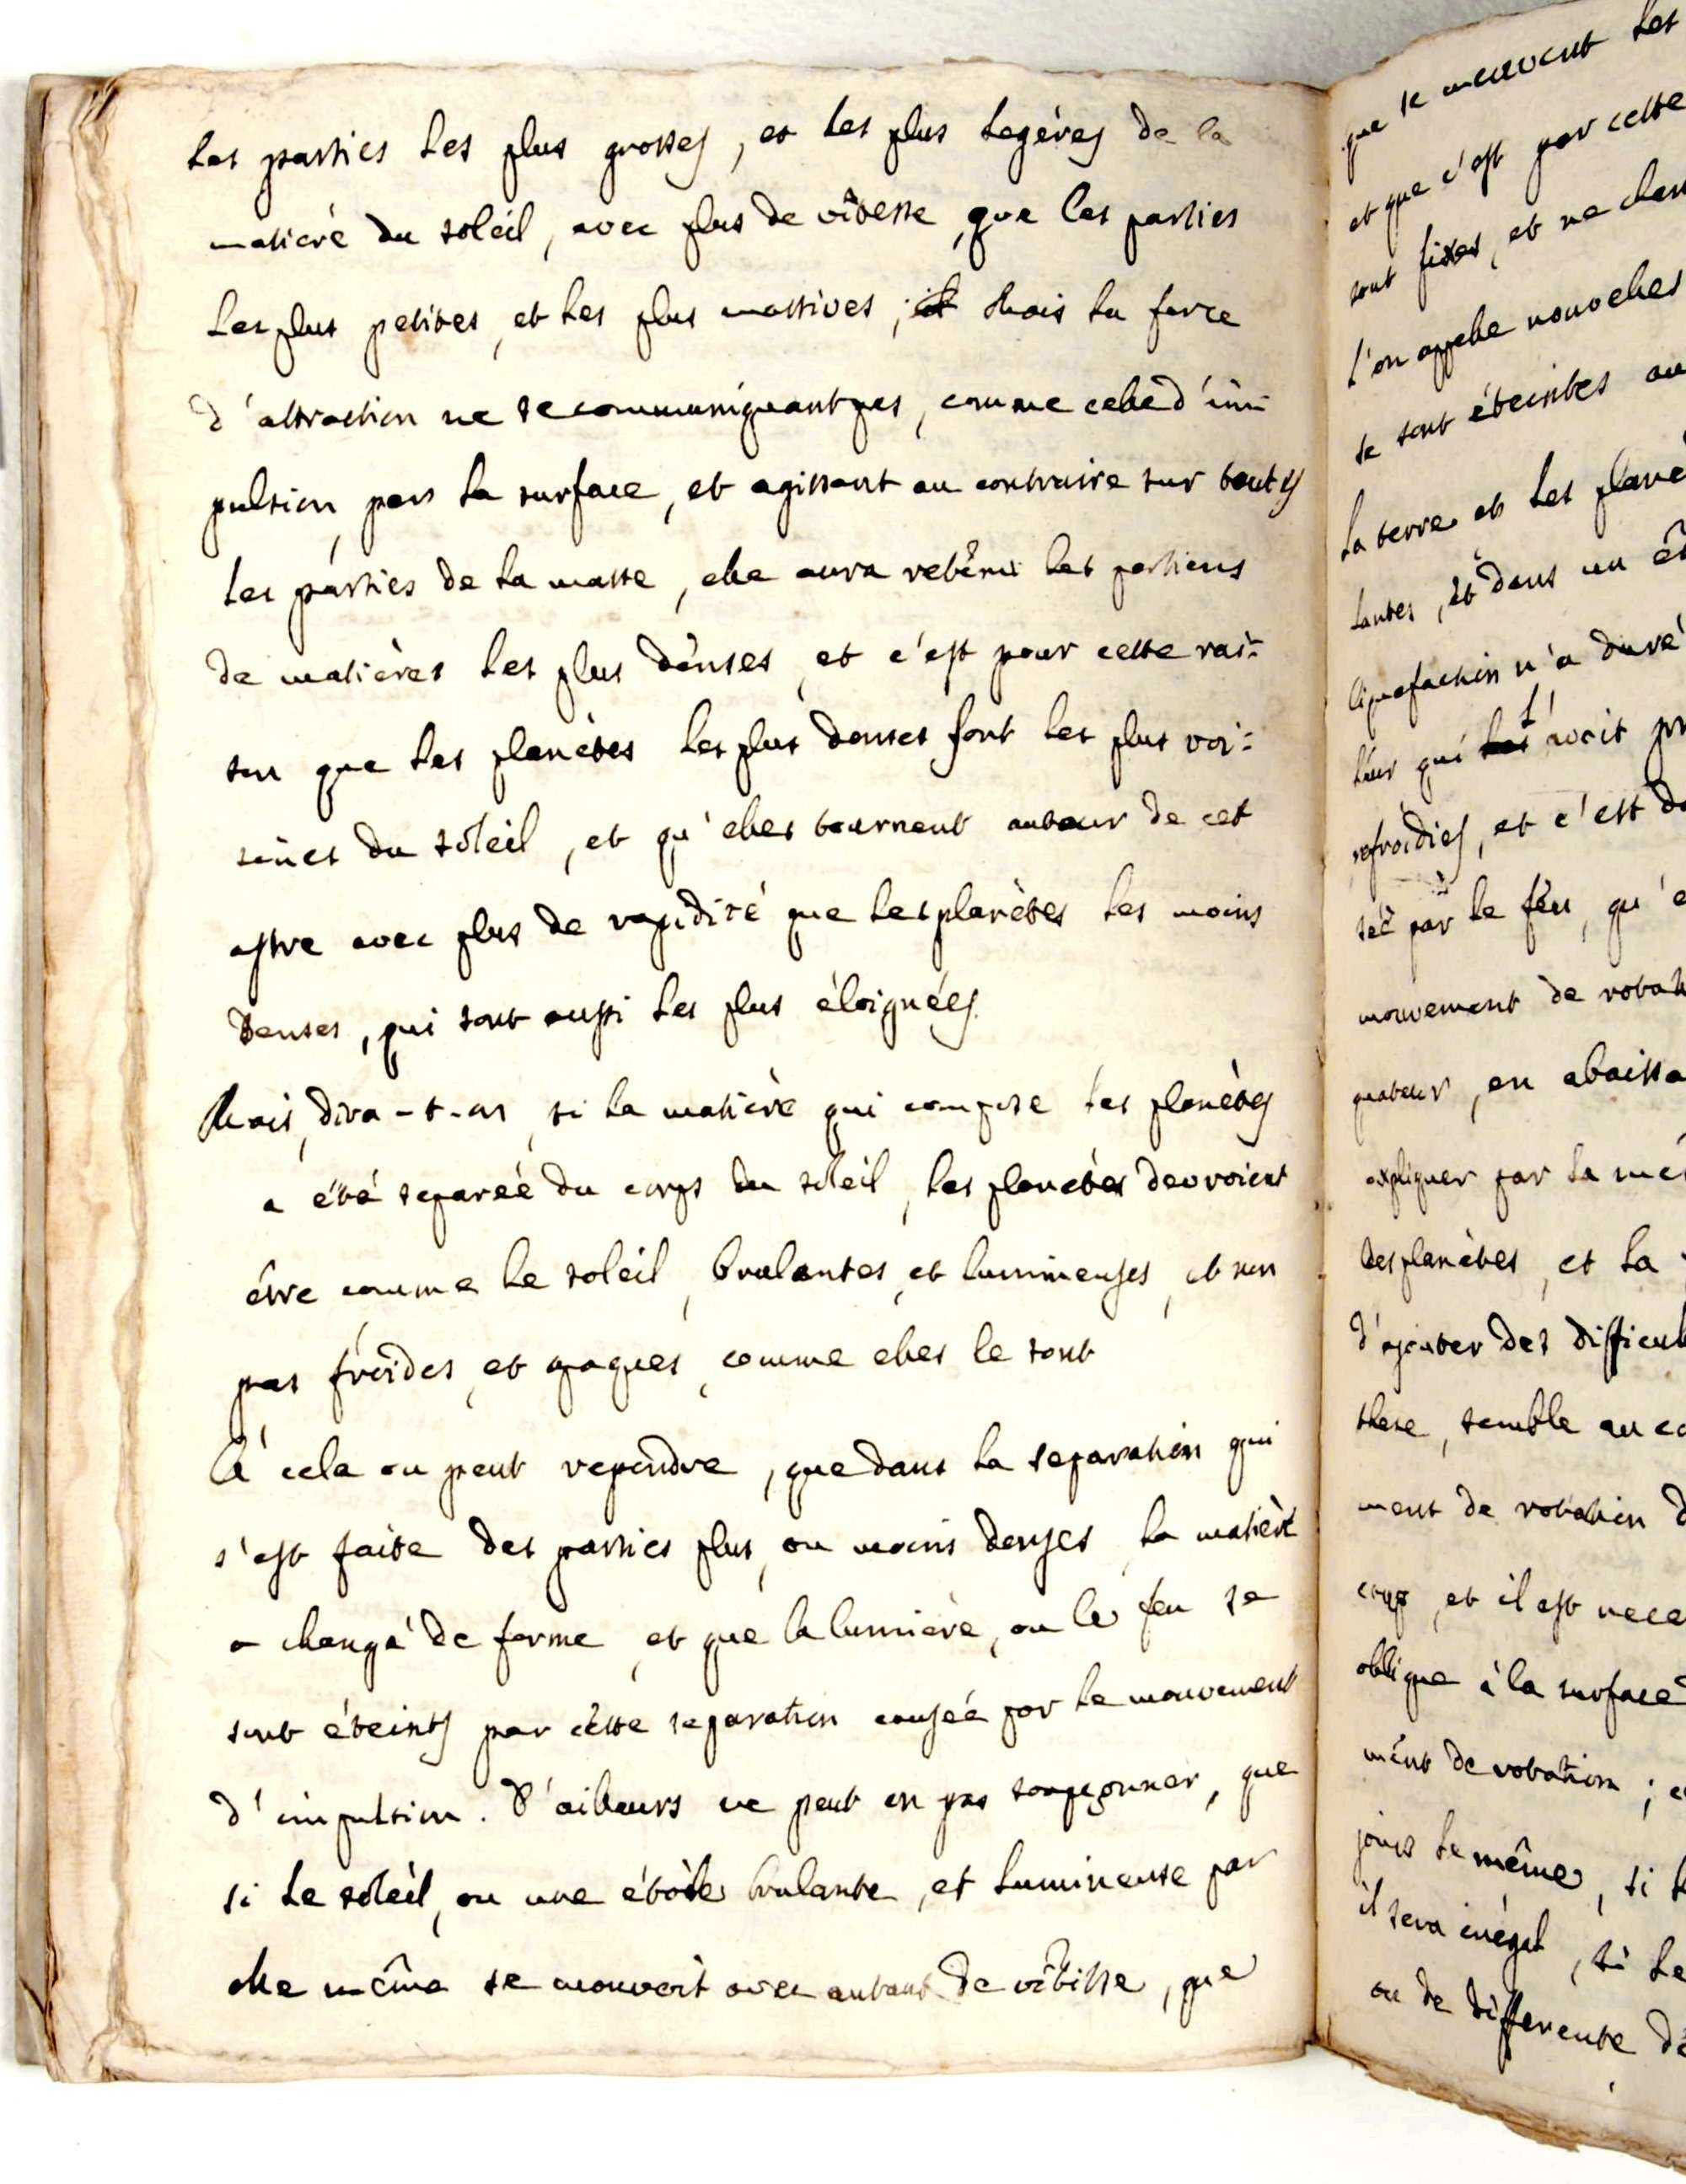 les parties les plus grosses, et les plus legères de la
matiere du soleil, avec plus de vitesse, que les parties
les plus petites, et les plus massives; Mais la force
d'attraction ne se communiquant pas, comme celle d'im-
pulsion, par la surface, et agissant au contraire sur toutes
les parties de la masse, elle aura retenu les portions
de matières les plus denses, et c'est pour cette rai-
son que les planètes les plus denses sont les plus voi-
sines du soleil, et qu'elles tournent autour de cet
astre avec plus de rapidité que les planètes les moins
denses, qui sont aussi les plus éloignées.
Mais, dira-t-on, si la matière qui compose les planètes
a été separée du corps du soleil, les planètes devroient
être comme le soleil, brulantes, et lumineuses, et non
pas froides, et opaques, comme elles le sont
à cela on peut repondre, que dans la separation qui
s'est faite des parties plus, ou moins denses, la matière
a changé de forme, et que la lumière, ou le feu se
sont éteints par cette separation causée par le mouvement
d'impulsion. D'ailleurs ne peut on pas soupçonner, que
si le soleil, ou une étoile brulante, et lumineuse par
elle même se mouvoit avec autant de vitesse, que
que se meuvent les
et que c'est par cette
sont fixes, et ne
l'on appelle nouvelles
se sont éteintes au
la terre et les
dans un
liquefaction n'a duré
qui l'avoit
refroidies, et c'est
par le feu, qu'
mouvement de
quateur, en
expliquer par la
des planètes, et la
d'ajouter des
these, semble au
ment de rotation
corps, et il est
oblique à la surface
ment de rotation;
jours le même, si
il sera inégal, si le
ou de differente